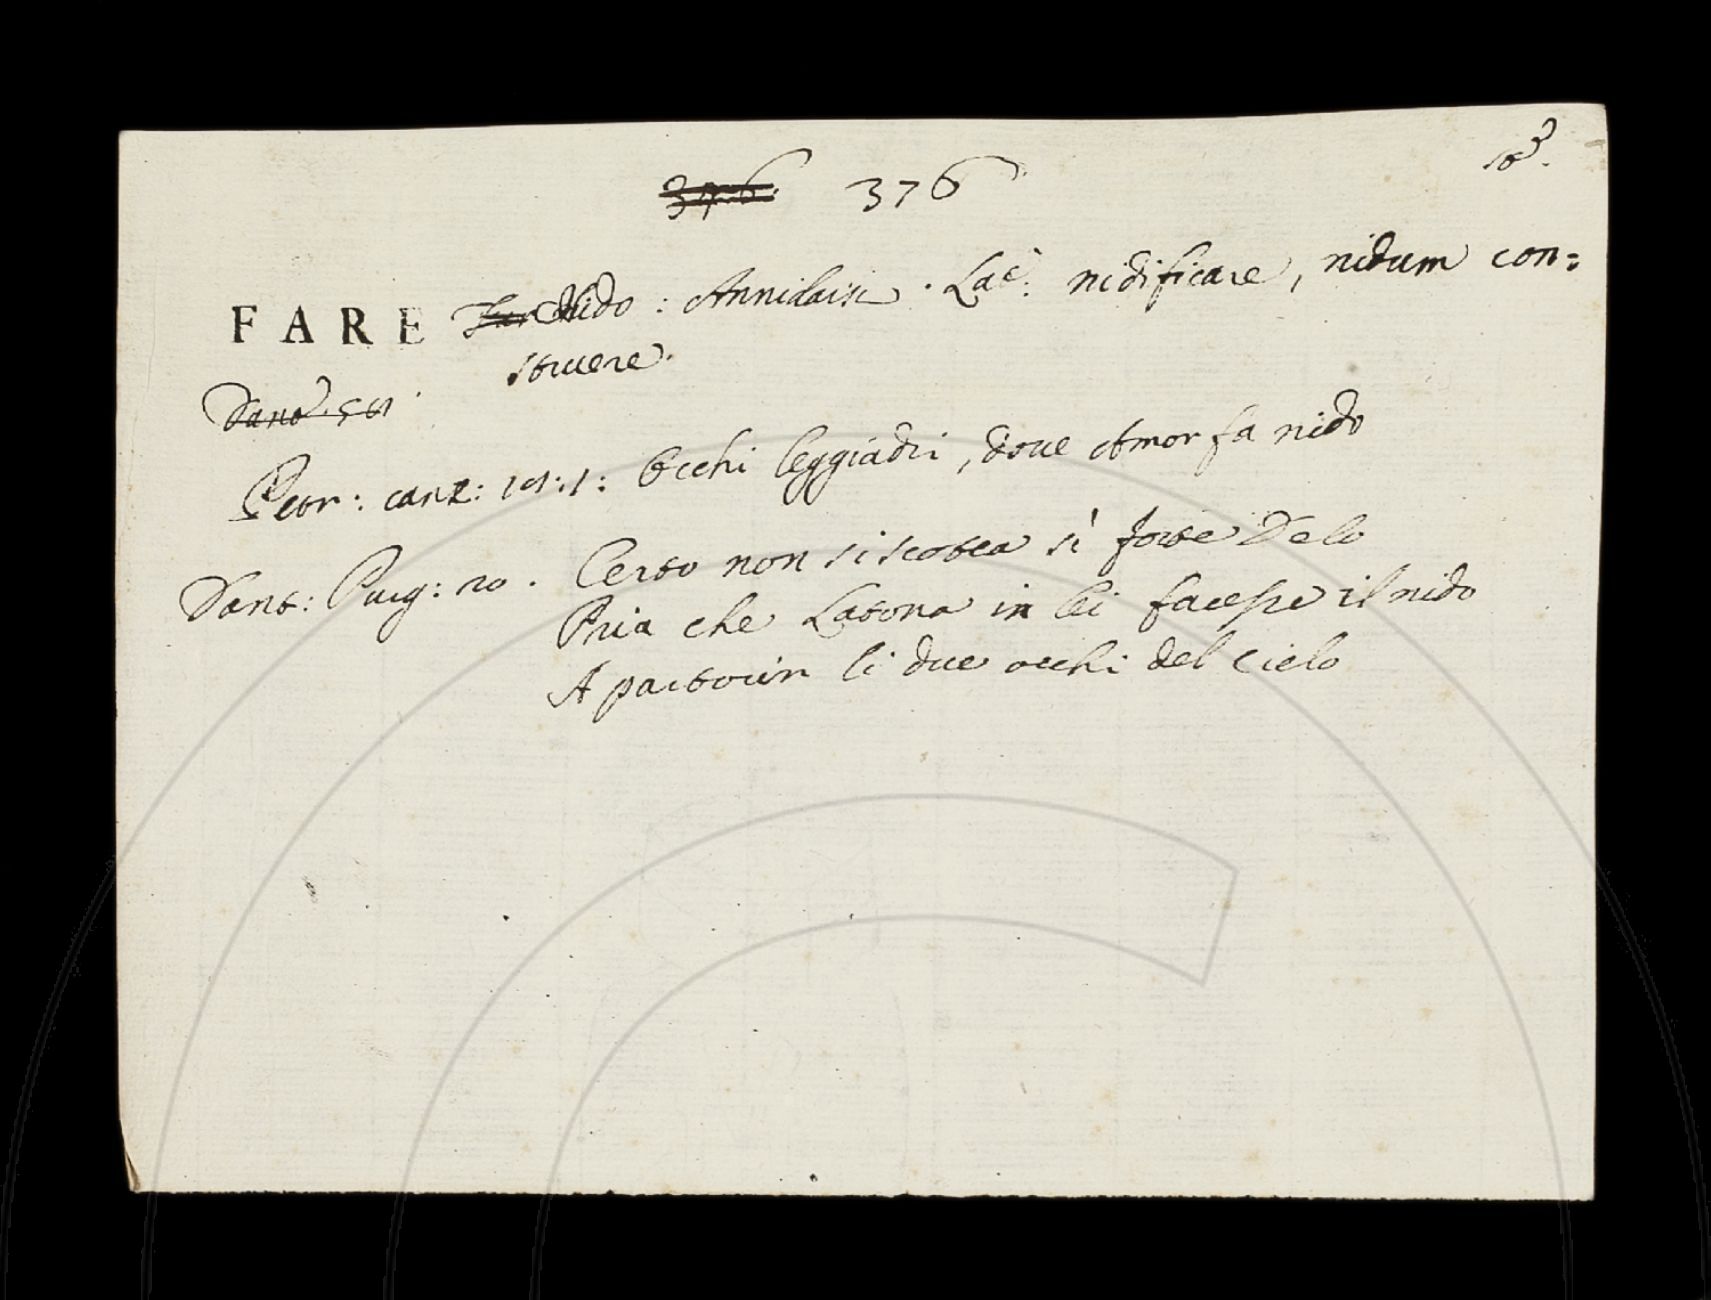 376 376
FARE Far Nido : Annidarsi . Lat: nidificare, nidum con=
struere.
Petr: canz: 19:1: Occhi leggiadri, dove Amor fa nido
Dant: Purg: 20. Certo non si scotea sì forte Delo
Pria che Latona in lei facesse il nido
A partorir li due occhi del cielo